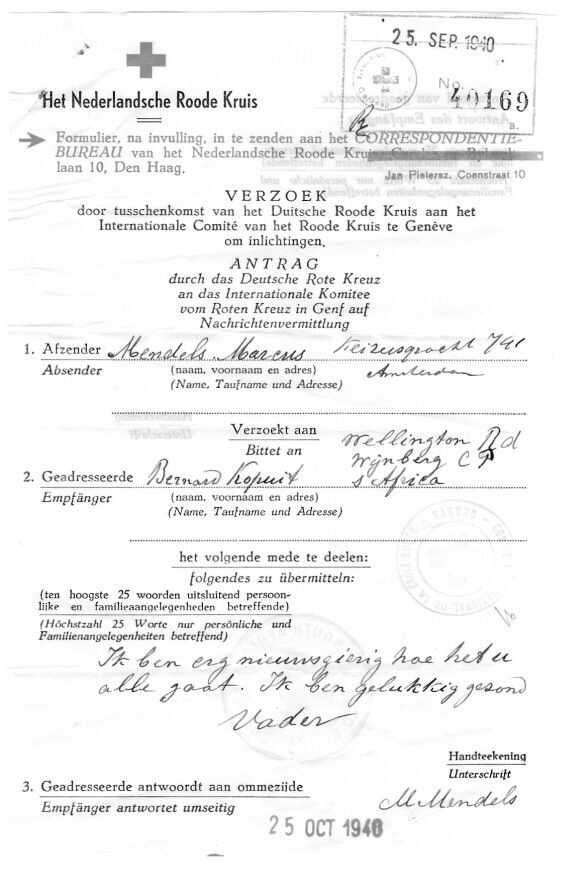 25. SEP. 1940
No. 40169
B.
Het Nederlandsche Roode Kruis
Formulier, na invulling, in te zenden aan het CORRESPONDENTIE-
BUREAU van het Nederlandsche Roode Kruis
laan 10, Den Haag.
Jan Pietersz. Coenstraat 10
VERZOEK
door tusschenkomst van het Duitsche Roode Kruis aan het
Internationale Comité van het Roode Kruis te Genêve
om inlichtingen.
ANTRAG
durch das Deutsche Rote Kreuz
an das Internationale Komitee
vom Roten Kreuz in Genf auf
Nachrichtenvermittlung
1. Afzender Mendels, Marcus Keizersgracht 741
Absender (naam, voornaam en adres) Amsterdam
(Name, Taufname und Adresse)
Verzoekt aan
Bittet an
Wellington Rd
Wijnberg C P
2. Geadresseerde Bernard Kopuit S'Africa
Empfänger (naam, voornaam en adres)
(Name, Taufname und Adresse)
het volgende mede te deelen:
folgendes zu übermitteln:
(ten hoogste 25 woorden uitsluitend persoon-
lijke en familieaangelegenheden betreffende)
(Höchstzahl 25 Worte nur persönliche und
Familienangelegenheiten betreffend)
Ik ben erg nieuwsgierig hoe het u
alle gaat. Ik ben gelukkig gesond
Vader
Handteekening
Unterschrift
3. Geadresseerde antwoordt aan ommezijde
Empfänger antwortet umseitig
M Mendels
25 OCT 1940